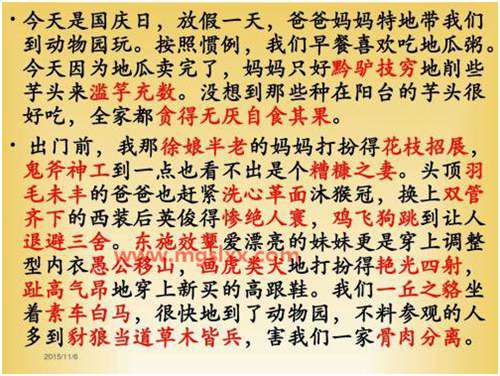 • 今天是国庆日，放假一天，爸爸妈妈特地带我们
到动物园玩。按照惯例，我们早餐喜欢吃地瓜粥。
今天因为地瓜卖完了，妈妈只好黔驴技穷地削些
芋头来滥竽充数。没想到那些种在阳台的芋头很
好吃，全家都贪得无厌自食其果。
• 出门前，我那徐娘半老的妈妈打扮得花枝招展，
鬼斧神工到一点也看不出是个糟糠之妻。头顶羽
毛未丰的爸爸也赶紧洗心革面沐猴冠，换上双管
齐下的西装后英俊得惨绝人寰，鸡飞狗跳到让人
退避三舍。东施效颦爱漂亮的妹妹更是穿上调整
型内衣愚公移山，画虎类犬地打扮得艳光四射，
趾高气昂地穿上新买的高跟鞋。我们一丘之貉坐
着素车白马，很快地到了动物园，不料参观的人
多到豺狼当道草木皆兵，害我们一家骨肉分离。
www.mgslxx.com
2015/11/6